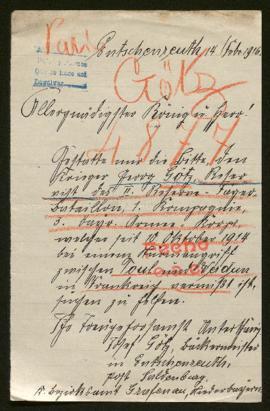 Paris
Entschenreuth 14. Febr. 1916.
Götz
Allergnädigster König u. Herr!
Gestatte mir die Bitte, den
Krieger Georg Götz, Reser-
vist des II. Reserve-Jäger-
Bataillon, 1. Kompagnie,
3. bayr. Armee-Korps,
welcher seit 1. Oktober 1914
bei einem Sturmangriff
zwischen Toul und Verdun
in Frankreich vermißt ist,
suchen zu helfen.
Ihr treugehorsamst Unterthän.
Josef Götz, Bäckermeister
in Entschenreuth,
post Saldenburg
K. Bezirksamt Grafenau Niederbayern